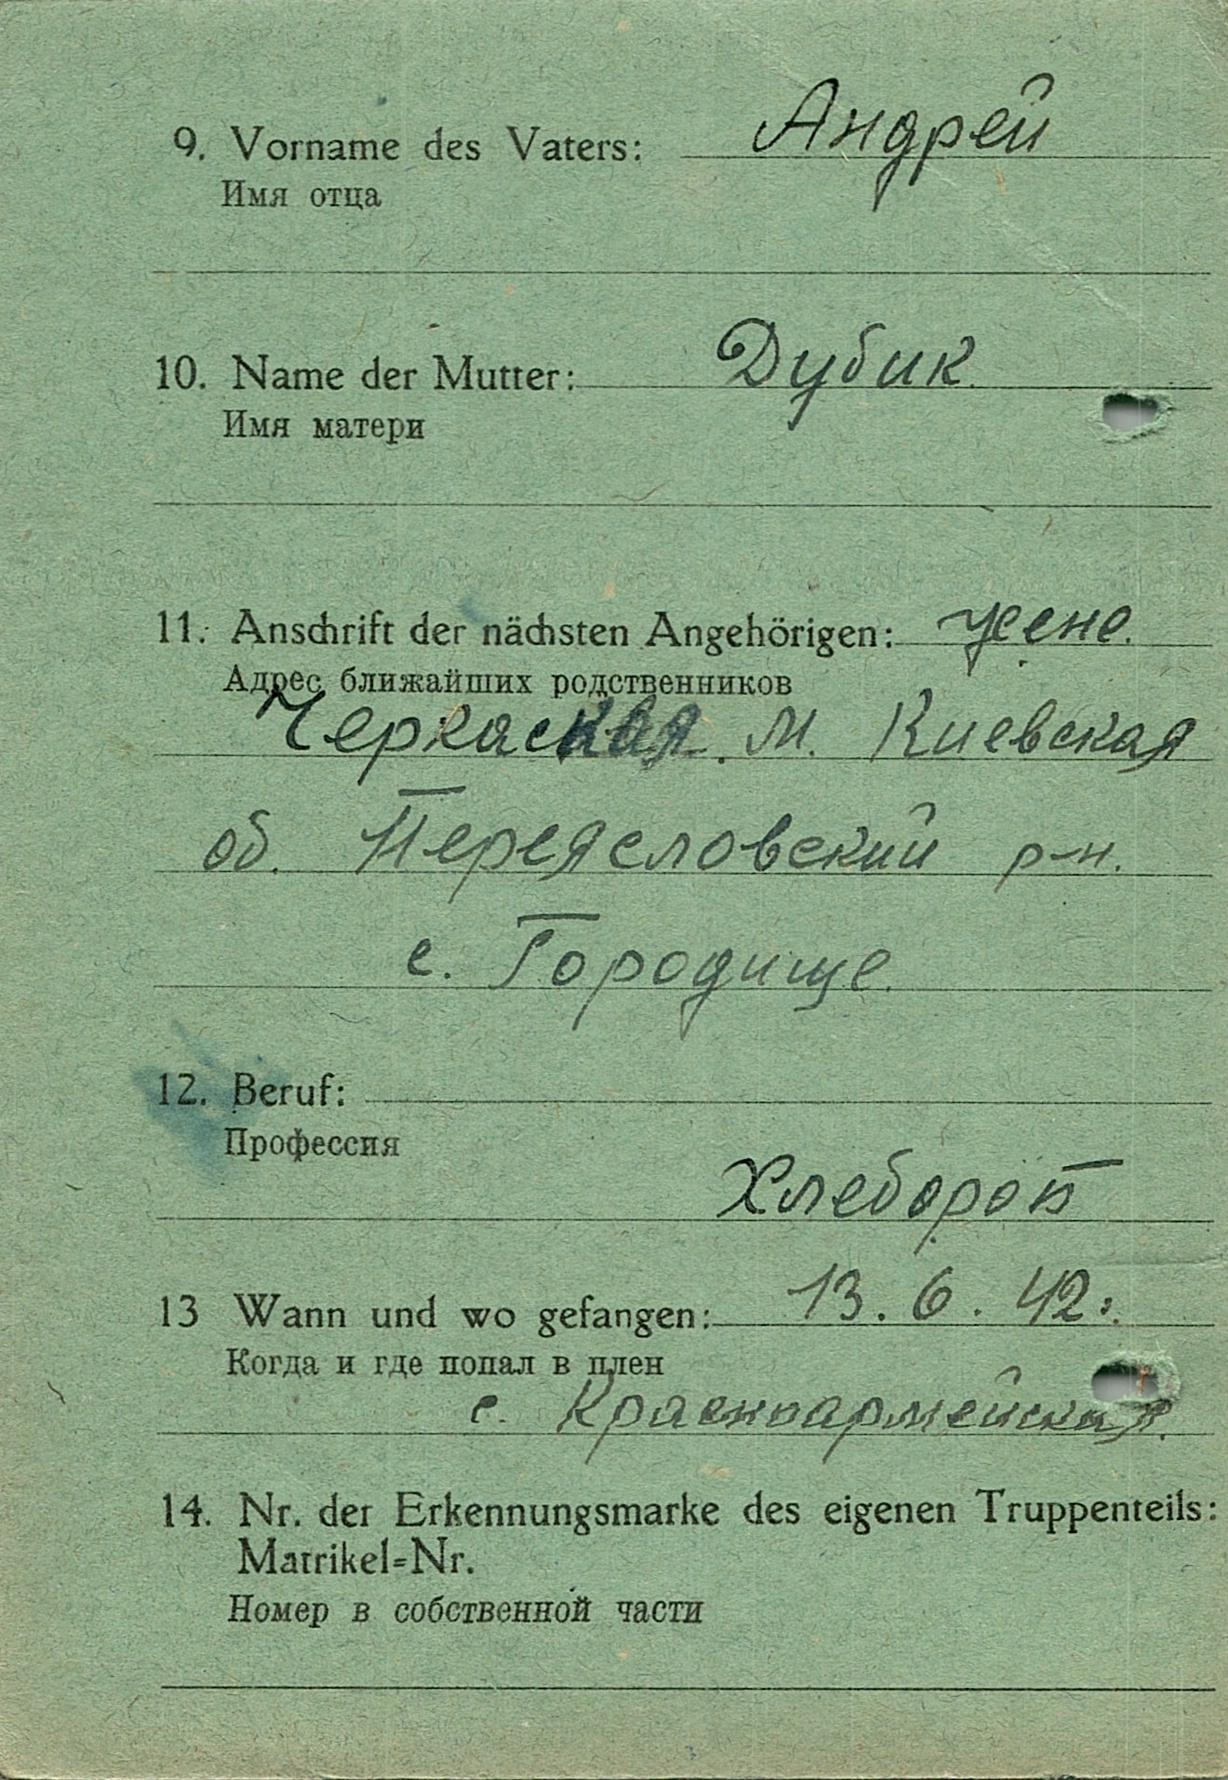 9. Vorname des Vaters: Андрей
Имя отца
10. Name der Mutter: Дубик
Имя матери
11. Anschrift der nächsten Angehörigen: жене.
Адрес ближайших родственников
Черкаская. М. Киевская
об. Переясловский р-н.
с. Городище.
12. Beruf:
Профессия
Хлебороб
13 Wann und wo gefangen: 13. 6. 42.
Когда и где попал в плен
с. Красноармейская.
14. Nr. der Erkennungsmarke des eigenen Truppenteils:
Matrikel=Nr.
Номер в собственной части